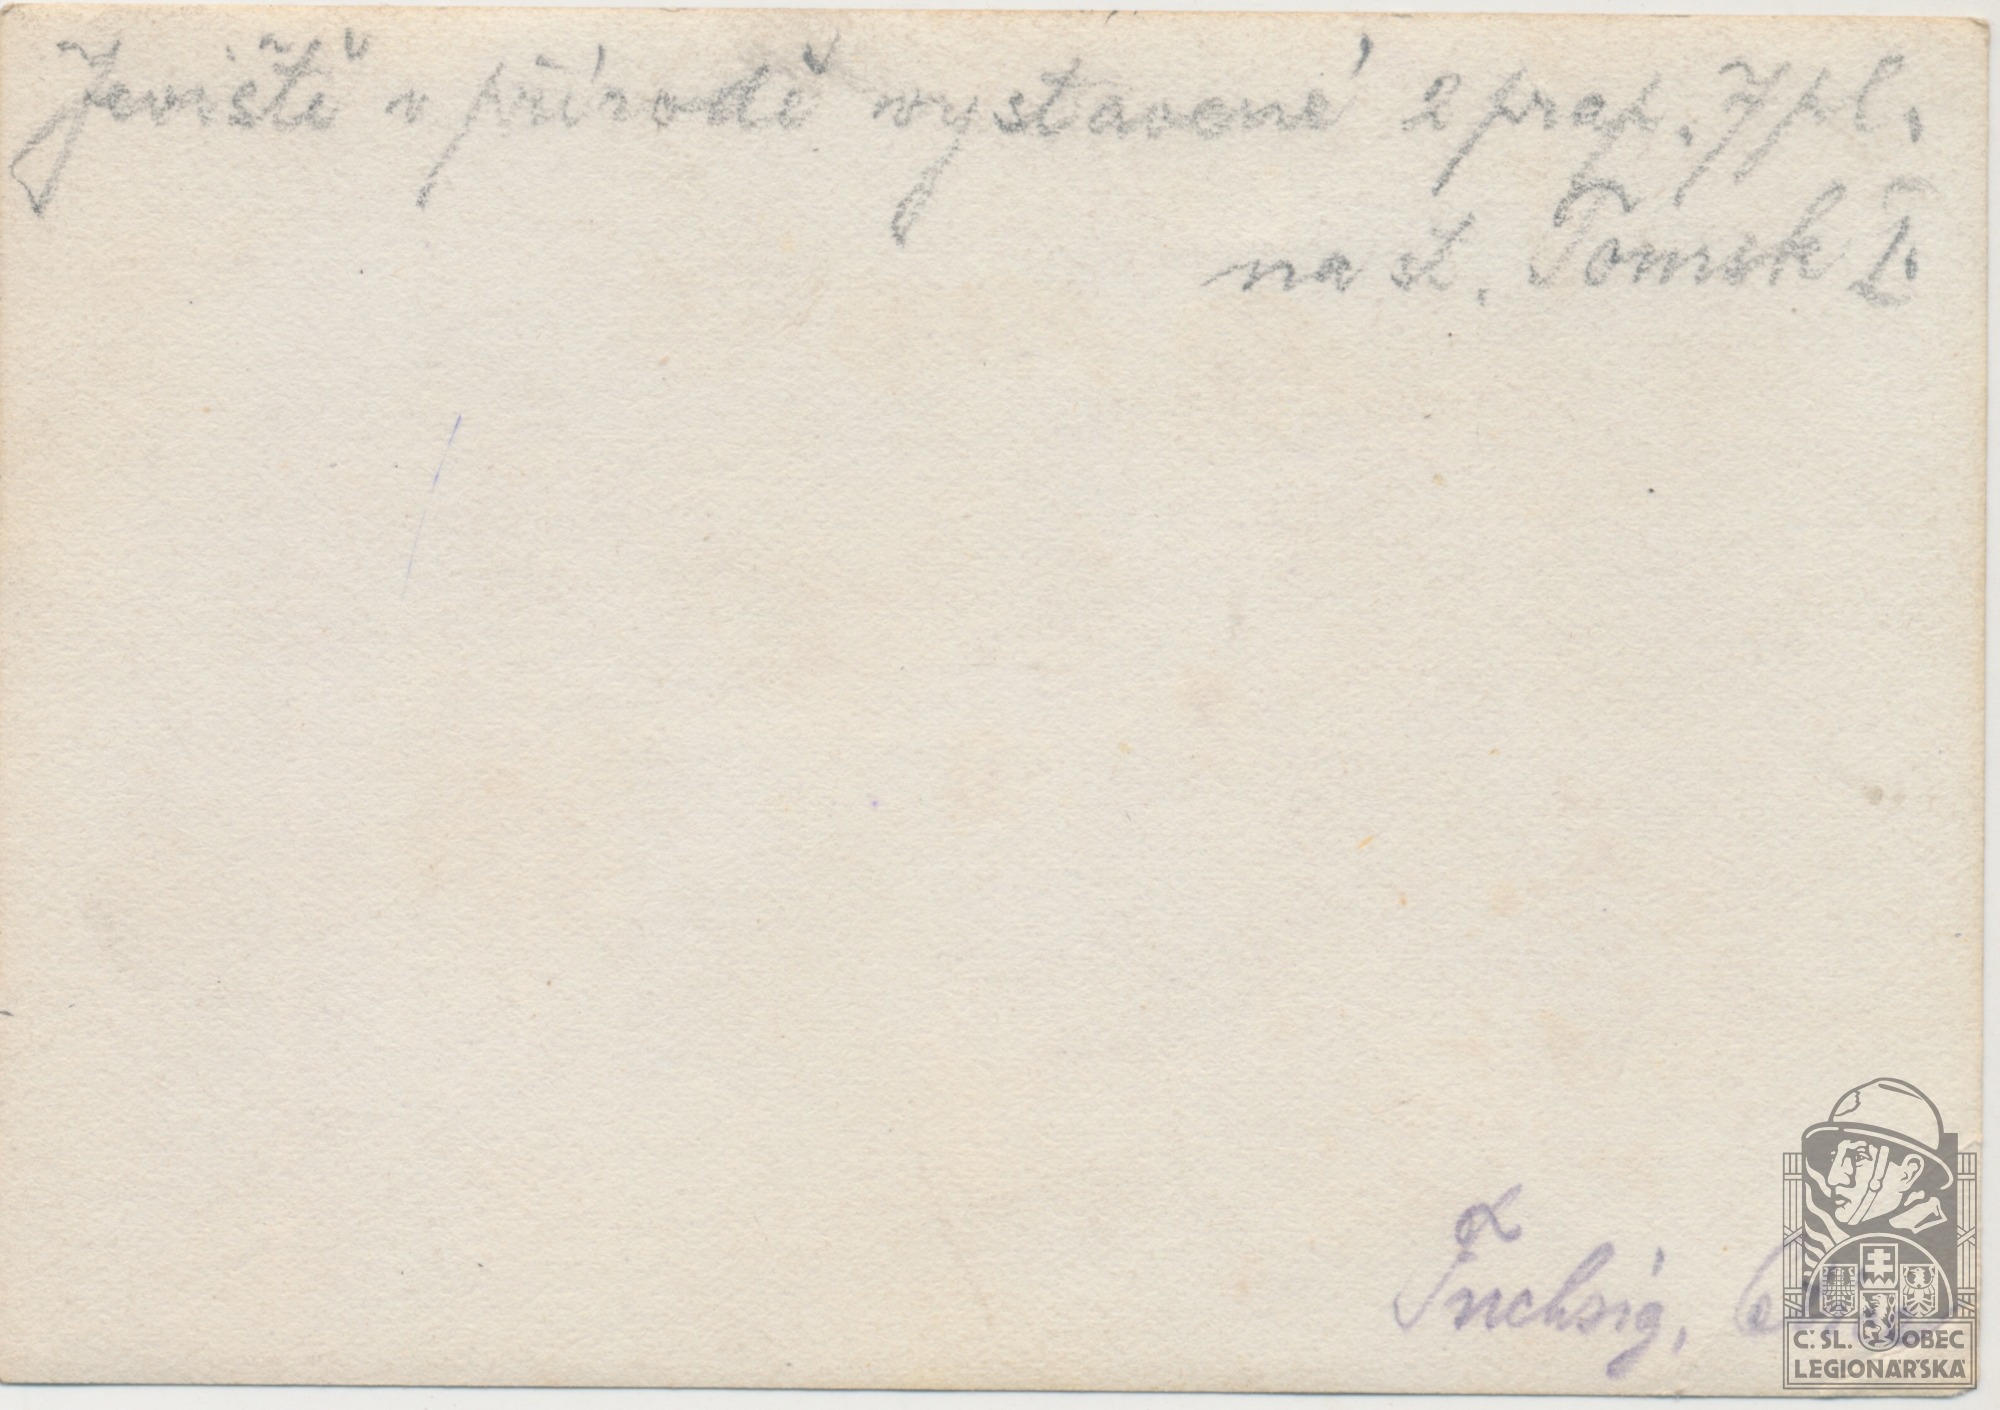 Jeviště v přírodě vystavené 2 prap. 7 pl.
na st. Tomsk I.
Fuchsig,
Č. SL. OBEC
LEGIONÁŘSKÁ